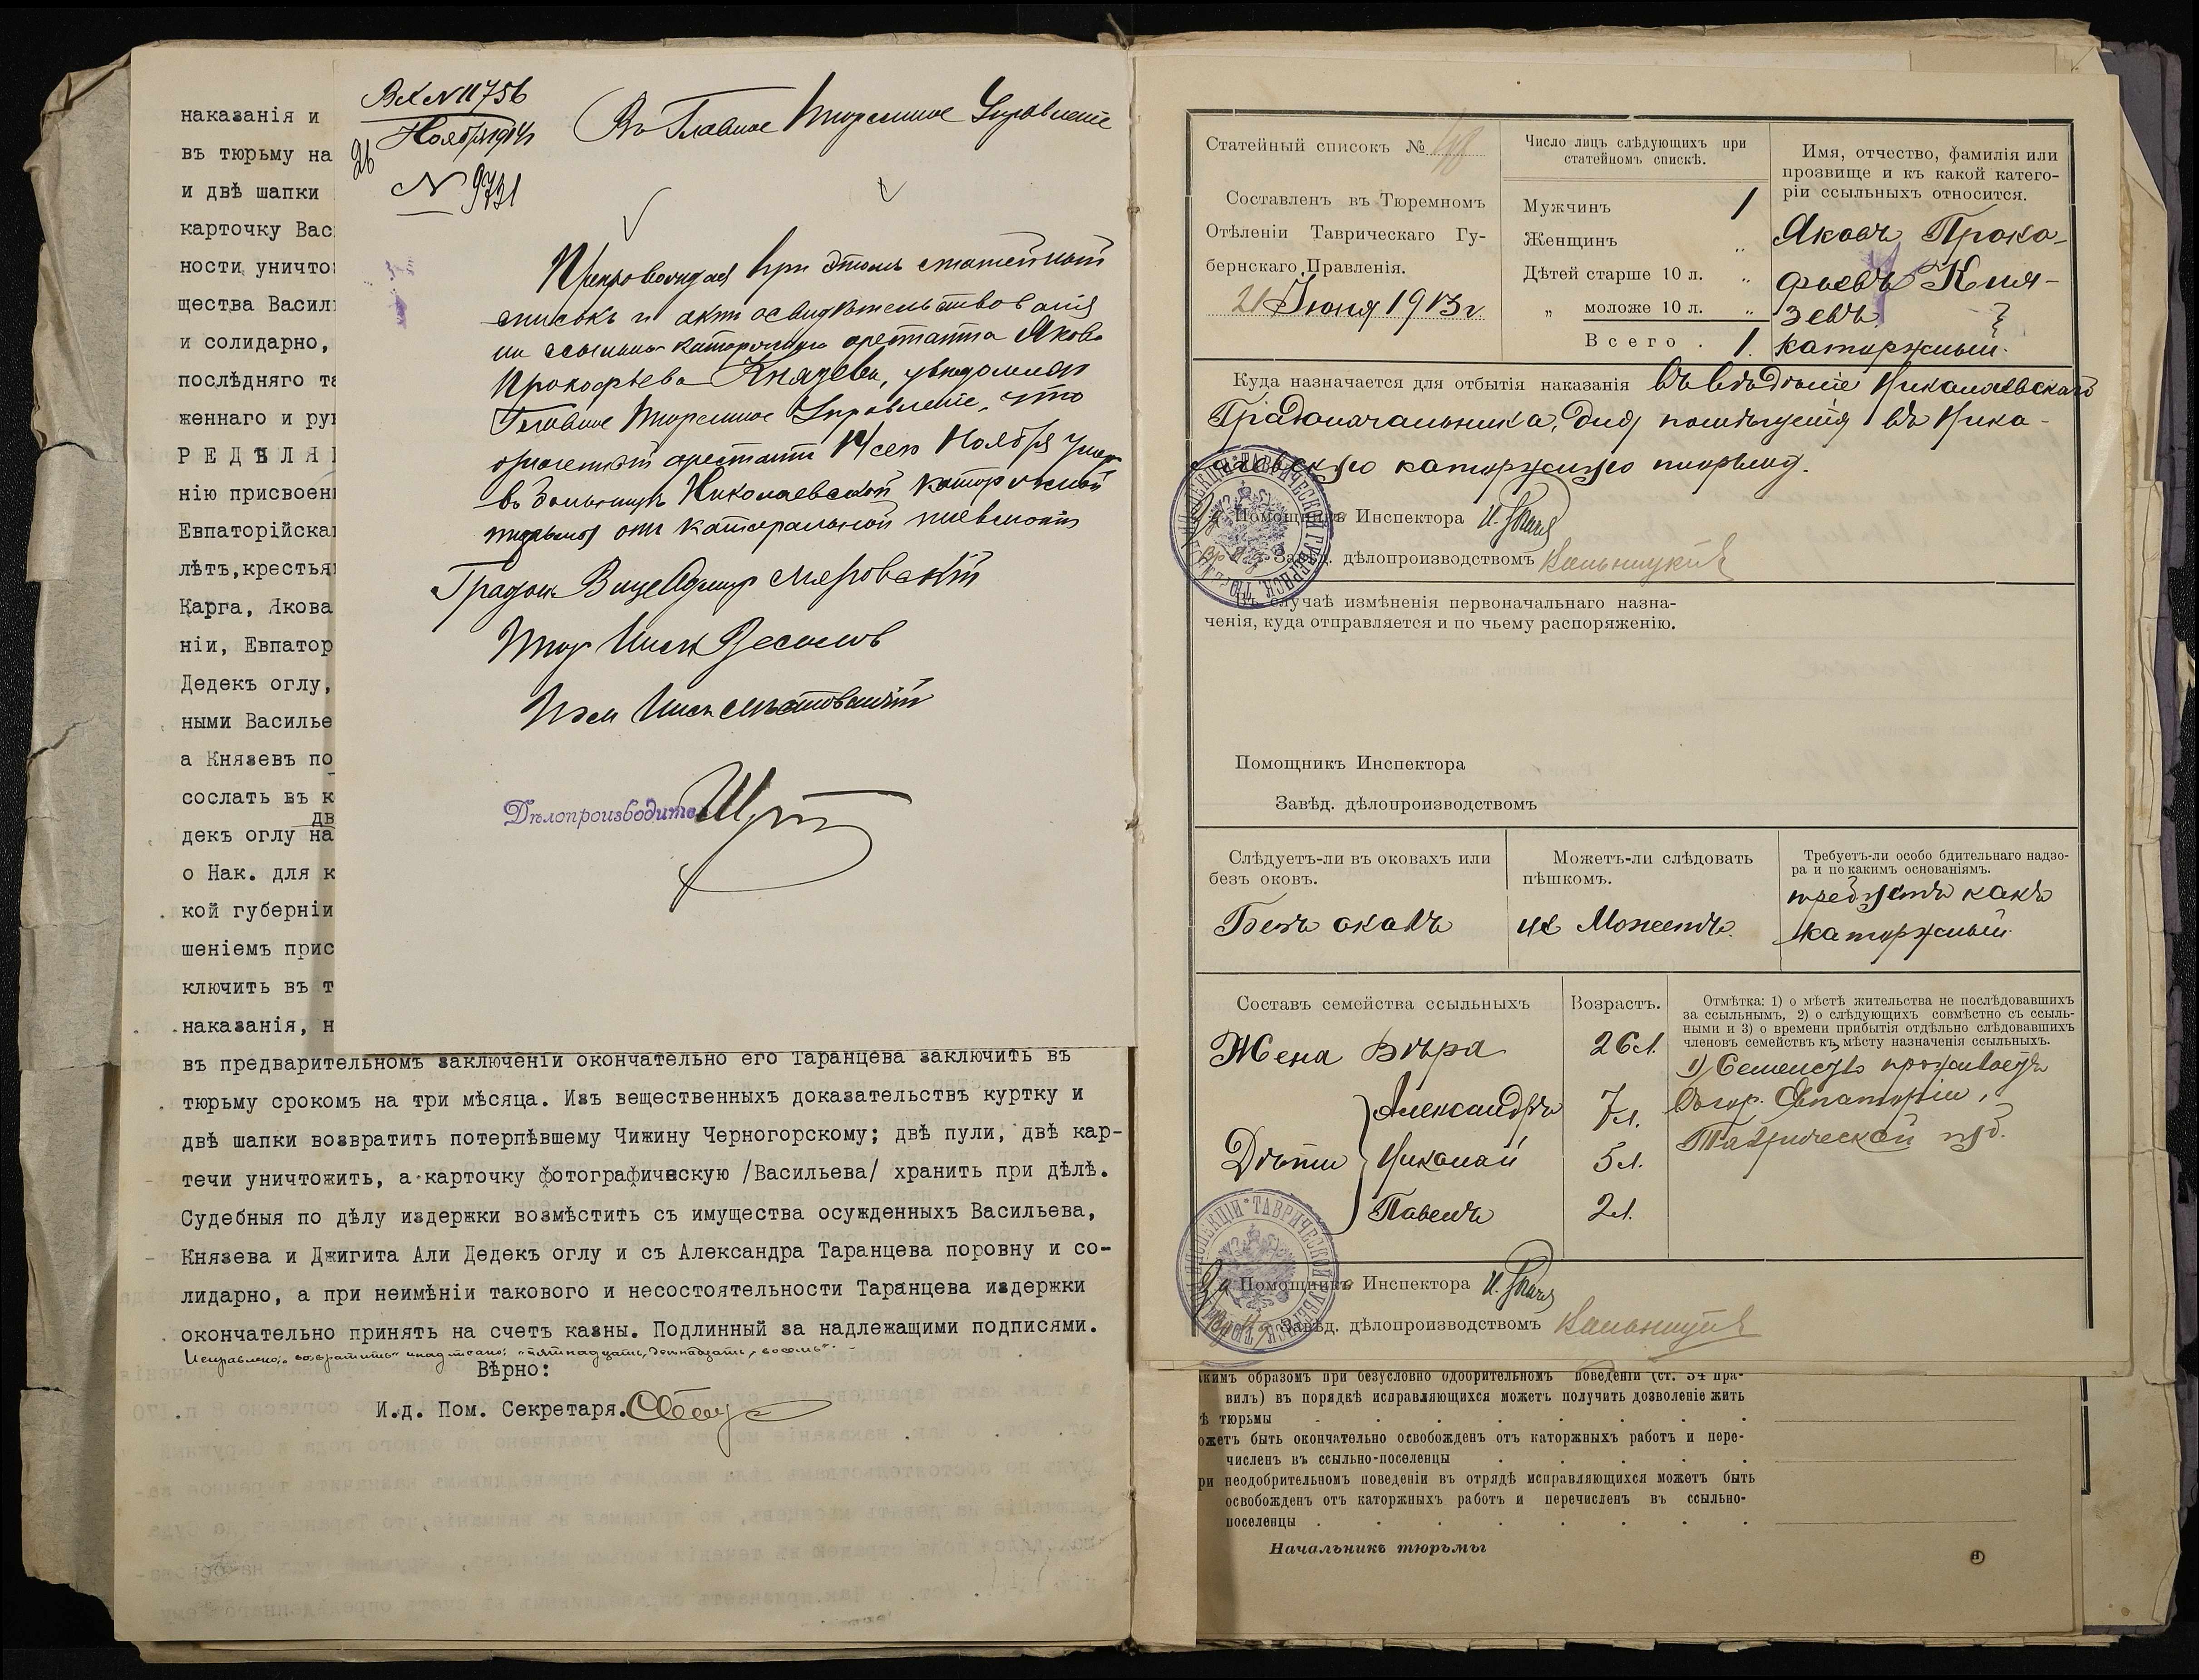 наказанія и
въ тюрьму на
и двѣ шапки
карточку Вас
ности уничто
щества Васил
и солидарно,
послѣдняго та
женнаго и ру
РЕДѢЛЯ
нію присвоен
Евпаторійска
лѣтъ,крестья
Карга, Якова
ніи, Евпатор
Дедекъ оглу,
ными Василье
а Князевъ по
сослать въ к
дв
декъ оглу на
о Нак. для к
кой губерніи
шеніемъ прис
ключить въ т
наказанія, н
въ предварительномъ заключеніи окончательно его Таранцева заключить въ
тюрьму срокомъ на три мѣсяца. Изъ вещественныхъ доказательствъ куртку и
двѣ шапки возвратить потерпѣвшему Чижину Черногорскому; двѣ пули, двѣ кар-
течи уничтожить, а карточку фотографическую /Васильева/ хранить при дѣлѣ.
Судебныя по дѣлу издержки возмѣстить съ имущества осужденныхъ Васильева,
Князева и Джигита Али Дедекъ оглу и съ Александра Таранцева поровну и со-
лидарно, а при неимѣніи такового и несостоятельности Таранцева издержки
окончательно принять на счетъ казны. Подлинный за надлежащими подписями.
Исправлено: "возвратить" надписано: "пятнадцать, двѣнадцать, восемь".
Вѣрно:
И.д. Пом. Секретаря.
Вх № 11756
26 Ноября 1914
№ 9731
Въ Главное Тюремное Управленіе
Препровождая при этомъ статейный
списокъ и актъ освидѣтельствованія
ссыльно каторжнаго арестанта Якова
Прокофьева Князева, увѣдомляю
Главное Тюремное Управленіе, что
арестантъ 14 сего Ноября умеръ
въ больницѣ Николаевской каторжной
тюрьмы отъ катаральной пневмоніи
Градон. Вице Адмир Мязговскій
Тюр Инсп
Пом Инсп
Дѣлопроизводитель
Статейный списокъ № 48
Составленъ въ Тюремномъ
Отѣленіи Таврическаго Гу-
бернскаго Правленія.
21 Іюня 1913 г
Число лицъ слѣдующихъ при
статейномъ спискѣ.
Мужчинъ 1
Женщинъ "
Дѣтей старше 10 л. "
" моложе 10 л. "
Всего . 1.
Имя, отчество, фамилія или
прозвище и къ какой катего-
ріи ссыльныхъ относится.
Яковъ Проко-
фьевъ Кня-
зевъ
каторжный.
Куда назначается для отбытія наказанія въ вѣдѣніе Николаевскаго
Градоначальника, для помѣщенія въ Нико-
лаевскую каторжную тюрьму.
Помощникъ Инспектора
Завѣд. дѣлопроизводствомъ
Въ случаѣ измѣненія первоначальнаго назна-
ченія, куда отправляется и по чьему распоряженію.
Помощникъ Инспектора
Завѣд. дѣлопроизводствомъ
Слѣдуетъ-ли въ оковахъ или
безъ оковъ.
Безъ оковъ
Можетъ-ли слѣдовать
пѣшкомъ.
не Можетъ.
Требуетъ-ли особо бдительнаго надзо-
ра и по какимъ основаніямъ.
требуетъ какъ
каторжный.
Составъ семейства ссыльныхъ
Возрастъ.
Отмѣтка: 1) о мѣстѣ жительства не послѣдовавшихъ
за ссыльнымъ, 2) о слѣдующихъ совмѣстно съ ссыль-
ными и 3) о времени прибытія отдѣльно слѣдовавшихъ
членовъ семействъ къ мѣсту назначенія ссыльныхъ.
Жена Вѣра 26 л.
Дѣти
Александръ 7 л.
Николай 5 л.
Павелъ 2 л.
1) Семейство проживаетъ
въ гор. Евпаторіи,
Таврической губ.
Помощникъ Инспектора
Завѣд. дѣлопроизводствомъ
кимъ образомъ при безусловно одобрительномъ поведеніи (ст. 34 пра-
вилъ) въ порядкѣ исправляющихся можетъ получить дозволеніе жить
ѣ тюрьмы
ожетъ быть окончательно освобожденъ отъ каторжныхъ работъ и пере-
численъ въ ссыльно-поселенцы
ри неодобрительномъ поведеніи въ отрядѣ исправляющихся можетъ быть
освобожденъ отъ каторжныхъ работъ и перечисленъ въ ссыльно-
поселенцы
Начальникъ тюрьмы